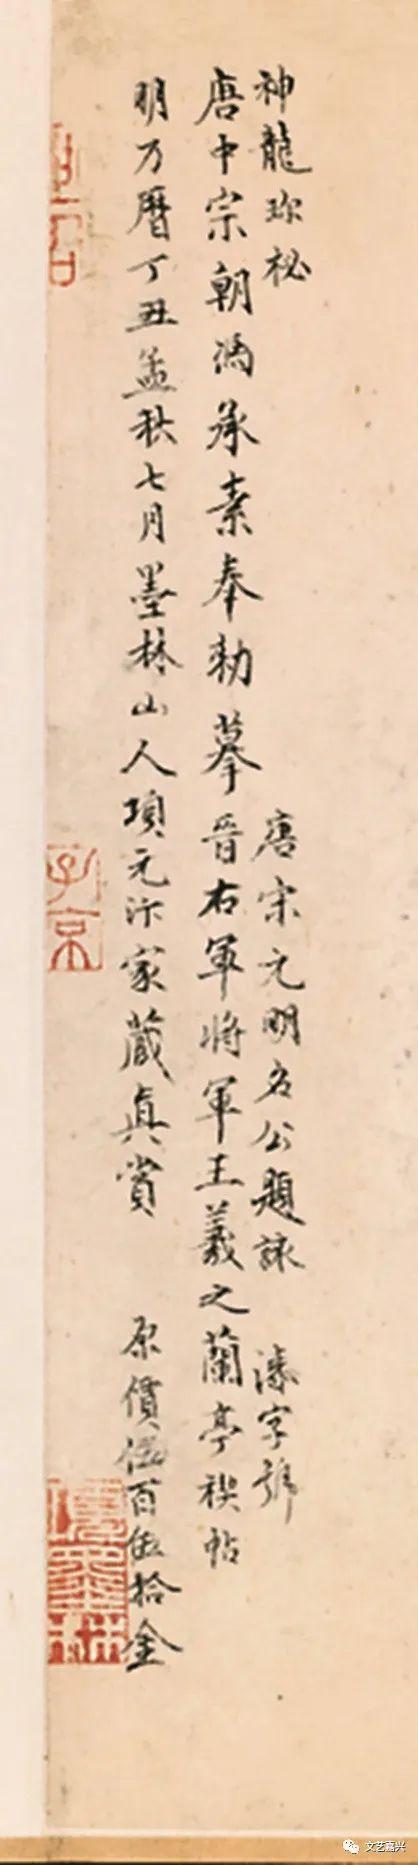 神龍珎秘 唐宋元明名公題詠 漆字號
唐中宗朝馮承素奉勑摹晉右軍將軍王羲之蘭亭禊帖
明万曆丁丑孟秋七月墨林山人項元汴家藏真賞 原價伍百伍拾金
子京
文艺嘉兴